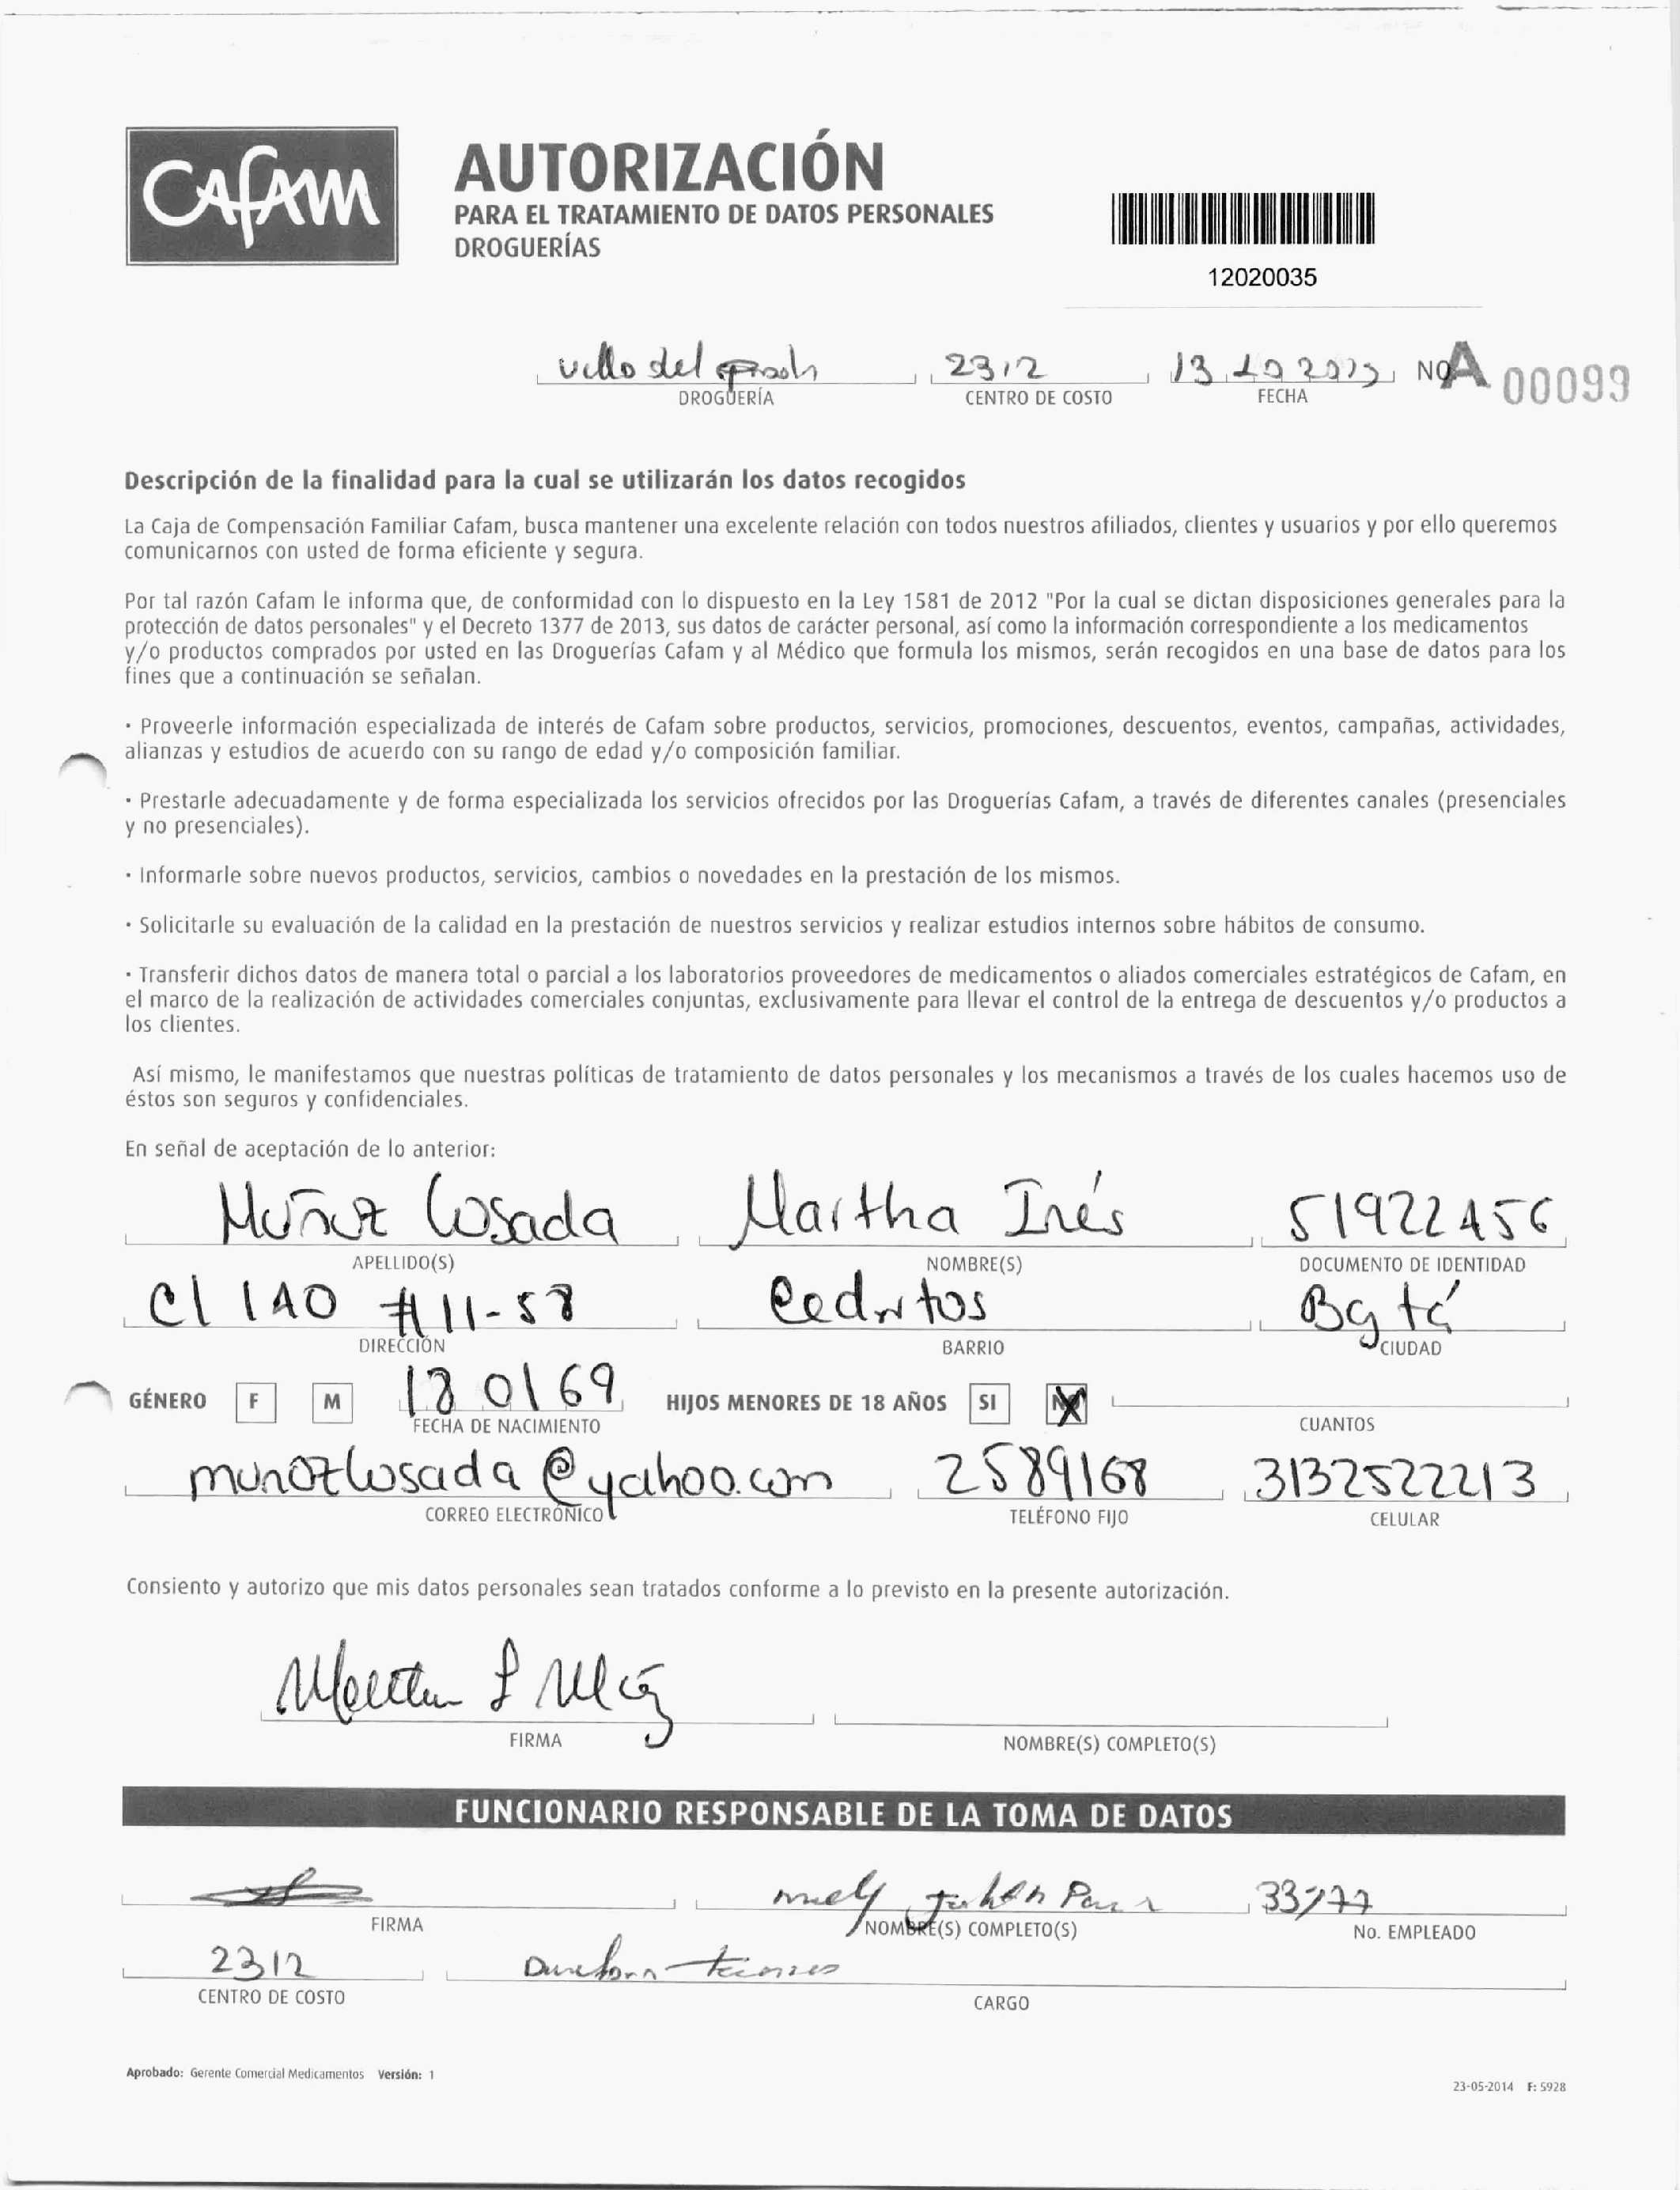 CAFAM
AUTORIZACIÓN
PARA EL TRATAMIENTO DE DATOS PERSONALES
DROGUERÍAS
12020035
del 2312 13 NO A 00099
DROGUERÍA CENTRO DE COSTO FECHA
Descripción de la finalidad para la cual se utilizarán los datos recogidos
La Caja de Compensación Familiar Cafam, busca mantener una excelente relación con todos nuestros afiliados, clientes y usuarios y por ello queremos
comunicarnos con usted de forma eficiente y segura.
Por tal razón Cafam le informa que, de conformidad con lo dispuesto en la Ley 1581 de 2012 "Por la cual se dictan disposiciones generales para la
protección de datos personales" y el Decreto 1377 de 2013, sus datos de carácter personal, así como la información correspondiente a los medicamentos
y/o productos comprados por usted en las Droguerías Cafam y al Médico que formula los mismos, serán recogidos en una base de datos para los
fines que a continuación se señalan.
· Proveerle información especializada de interés de Cafam sobre productos, servicios, promociones, descuentos, eventos, campañas, actividades,
alianzas y estudios de acuerdo con su rango de edad y/o composición familiar.
· Prestarle adecuadamente y de forma especializada los servicios ofrecidos por las Droguerías Cafam, a través de diferentes canales (presenciales
y no presenciales).
· Informarle sobre nuevos productos, servicios, cambios o novedades en la prestación de los mismos.
· Solicitarle su evaluación de la calidad en la prestación de nuestros servicios y realizar estudios internos sobre hábitos de consumo.
· Transferir dichos datos de manera total o parcial a los laboratorios proveedores de medicamentos o aliados comerciales estratégicos de Cafam, en
el marco de la realización de actividades comerciales conjuntas, exclusivamente para llevar el control de la entrega de descuentos y/o productos a
los clientes.
Así mismo, le manifestamos que nuestras políticas de tratamiento de datos personales y los mecanismos a través de los cuales hacemos uso de
éstos son seguros y confidenciales.
En señal de aceptación de lo anterior:
Muñoz Losada Martha Inés 51922456
APELLIDO(S) NOMBRE(S) DOCUMENTO DE IDENTIDAD
Cl 140 #11-58 Cedritos Bgtá
DIRECCIÓN BARRIO CIUDAD
GÉNERO F M 180169 HIJOS MENORES DE 18 AÑOS SI NO
FECHA DE NACIMIENTO CUANTOS
munozlosada@yahoo.com 2589168 3132522213
CORREO ELECTRÓNICO TELÉFONO FIJO CELULAR
Consiento y autorizo que mis datos personales sean tratados conforme a lo previsto en la presente autorización.
FIRMA NOMBRE(S) COMPLETO(S)
FUNCIONARIO RESPONSABLE DE LA TOMA DE DATOS
FIRMA NOMBRE(S) COMPLETO(S) No. EMPLEADO
2312
CENTRO DE COSTO CARGO
Aprobado: Gerente Comercial Medicamentos Versión: 1
23-05-2014 F: 5928